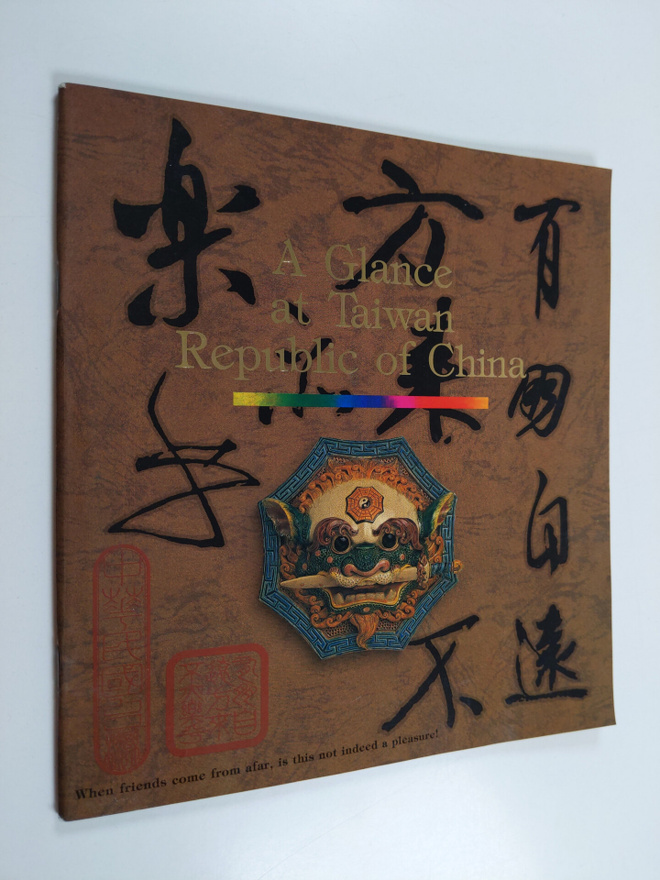 A Glance
at Taiwan
Republic of China
有朋自遠
方来不
亦
楽乎
When friends come from afar, is this not indeed a pleasure!